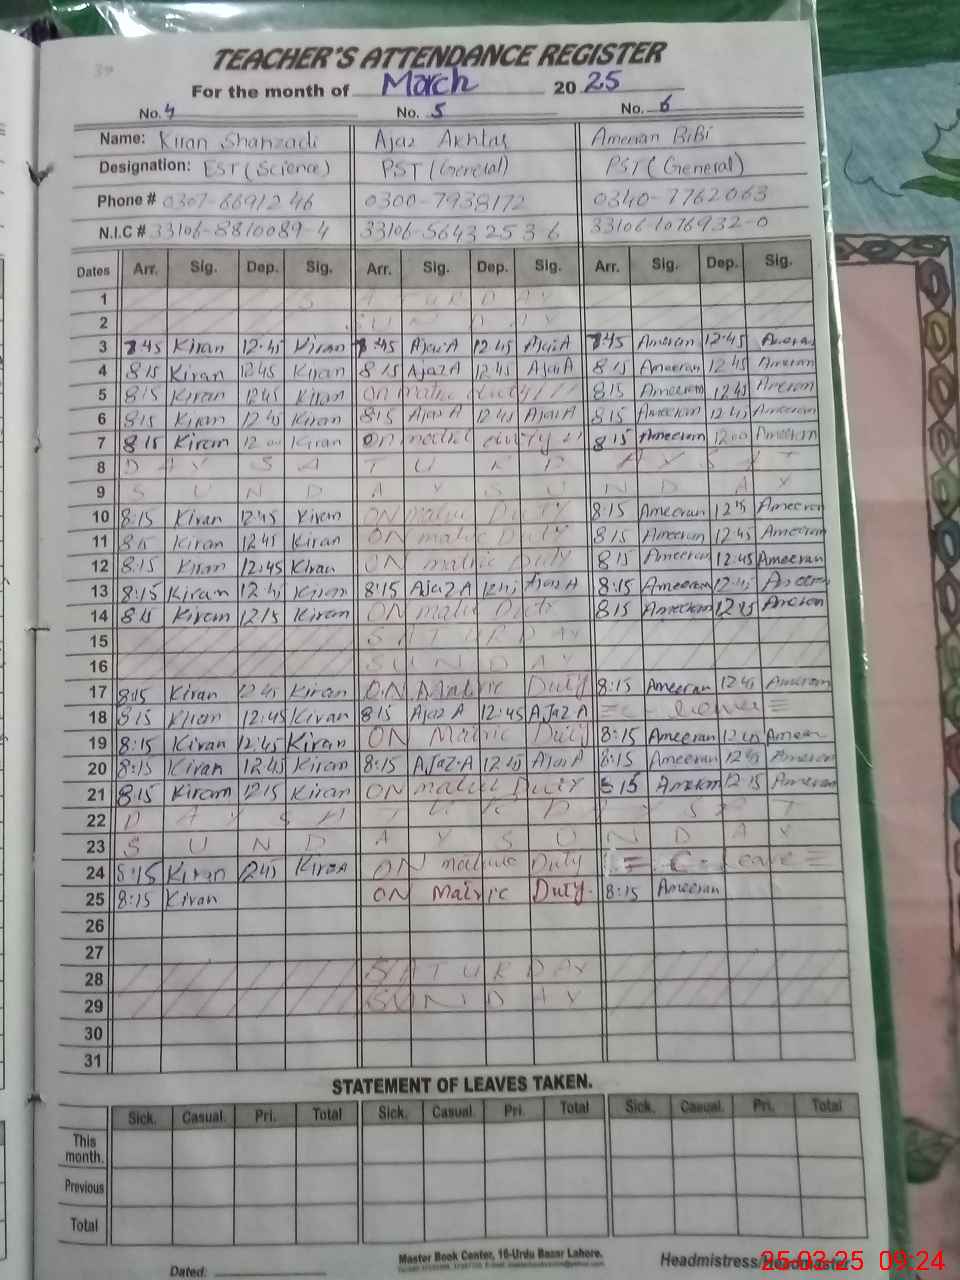 TEACHER'S ATTENDANCE REGISTER
For the month of March 20 25
No. 4 No. 5 No. 6
Name: Kiran Shahzadi Ajaz Akhtar Ameeran BiBi
Designation: EST (Science) PST (General) PST (General)
Phone # 0307-6691246 0300-7938172 0340-7762063
N.I.C # 33106-8810089-4 33106-5643253 6 33106-1076932-0
Dates Arr. Sig. Dep. Sig. Arr. Sig. Dep. Sig. Arr. Sig. Dep. Sig.
1 S A T U R D A Y
2 S U N D A Y
3 7:45 Kiran 12:45 Kiran 7:45 Ajaz A 12 45 Ajaz A 7:45 Ameeran 12:45 Ameeran
4 8 15 Kiran 12 45 Kiran 8 15 Ajaz A 12 45 Ajaz A 8 15 Ameeran 12 45 Ameeran
5 8 15 Kiran 12 45 Kiran ON matric duty 8 15 Ameeran 12 45 Ameeran
6 8 15 Kiran 12 45 Kiran 8 15 Ajaz A 12 45 Ajaz A 8 15 Ameeran 12 45 Ameeran
7 8 15 Kiran 12 00 Kiran ON matric duty 8 15 Ameeran 12 00 Ameeran
8 D A Y S A T U R D A Y S A T
9 S U N D A Y S U N D A Y
10 8:15 Kiran 12:45 Kiran ON matric Duty 8:15 Ameeran Ameeran
11 8 15 Kiran 12 45 Kiran ON matric Duty 8 15 Ameeran 12 45 Ameeran
12 8:15 Kiran 12:45 Kiran ON matric Duty 8 15 Ameeran 12:45 Ameeran
13 8:15 Kiran 12 45 Kiran 8:15 Ajaz A 12 45 Ajaz A 8:15 Ameeran 12:45 Ameeran
14 8 15 Kiran 12 15 Kiran ON matric Duty 8 15 Ameeran 12 15 Ameeran
15 S A T U R D A Y
16 S U N D A Y
17 8:15 Kiran 12 45 Kiran ON Matric Duty 8:15 Ameeran 12 45 Ameeran
18 8 15 Kiran 12:45 Kiran 8 15 Ajaz A 12:45 Ajaz A C-Leave
19 8:15 Kiran 12:45 Kiran ON Matric Duty 8:15 Ameeran 12 45 Ameeran
20 8:15 Kiran 12 45 Kiran 8:15 Ajaz A 12 45 Ajaz A 8:15 Ameeran 12 45 Ameeran
21 8 15 Kiran 12 15 Kiran ON matric Duty 8 15 Ameeran 12 15 Ameeran
22 D A Y S A T U R D A Y S A T
23 S U N D A Y S U N D A Y
24 8:15 Kiran 12 45 Kiran ON matric Duty C-Leave
25 8:15 Kiran ON Matric Duty 8:15 Ameeran
26
27
28 S A T U R D A Y
29 S U N D A Y
30
31
STATEMENT OF LEAVES TAKEN.
Sick. Casual. Pri. Total Sick. Casual. Pri. Total Sick. Casual. Pri. Total
This month.
Previous
Total
Master Book Center, 16-Urdu Bazar Lahore.
Dated: Headmistress/Headmaster
25-03-25 09:24